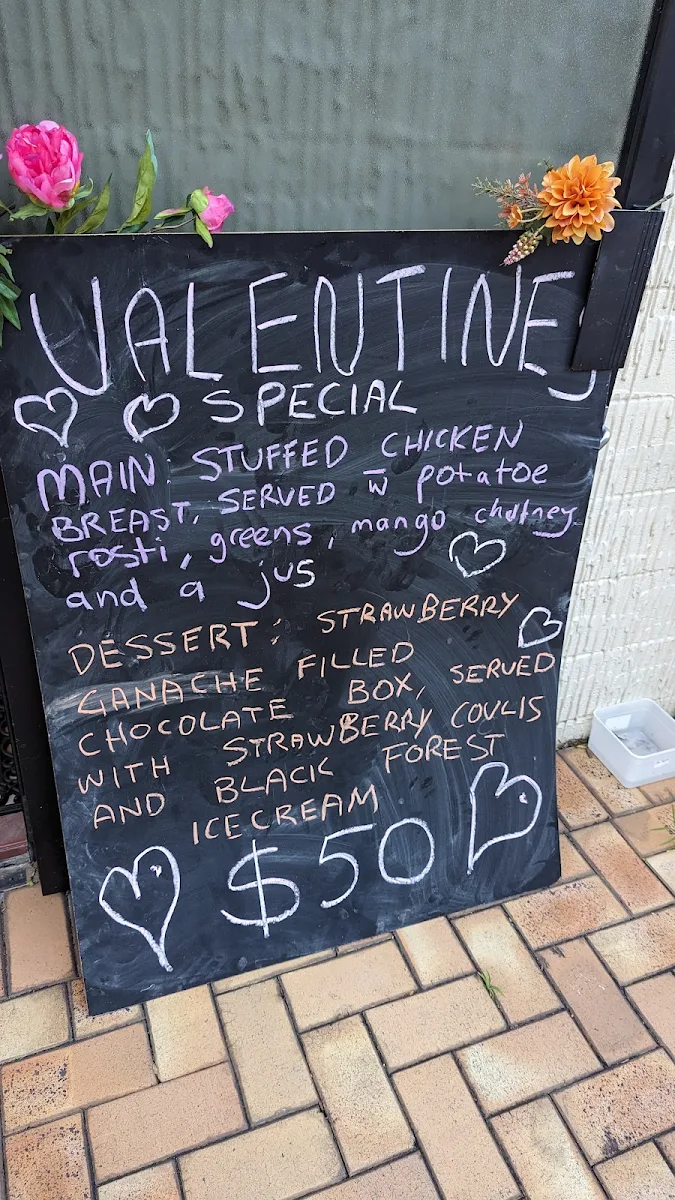 VALENTINES
SPECIAL
MAIN: STUFFED CHICKEN
BREAST, SERVED w potatoe
rosti, greens, mango chutney
and a jus
DESSERT: STRAWBERRY
GANACHE FILLED
CHOCOLATE BOX, SERVED
WITH STRAWBERRY COULIS
AND BLACK FOREST
ICECREAM
$50